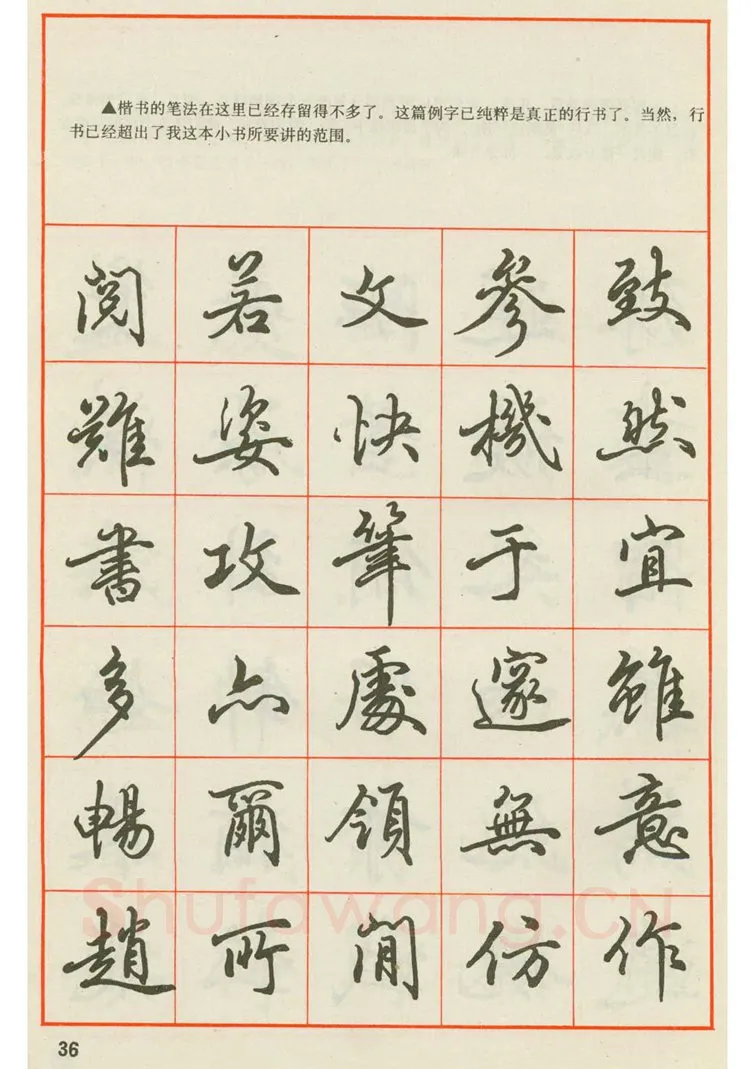 ▲楷书的笔法在这里已经存留得不多了。这篇例字已纯粹是真正的行书了。当然，行
书已经超出了我这本小书所要讲的范围。
閱若文參致
難姿快機然
書攻筆于宜
多亦處邃雖
暢爾領無意
趙所閒仿作
Shufawang.CN
36